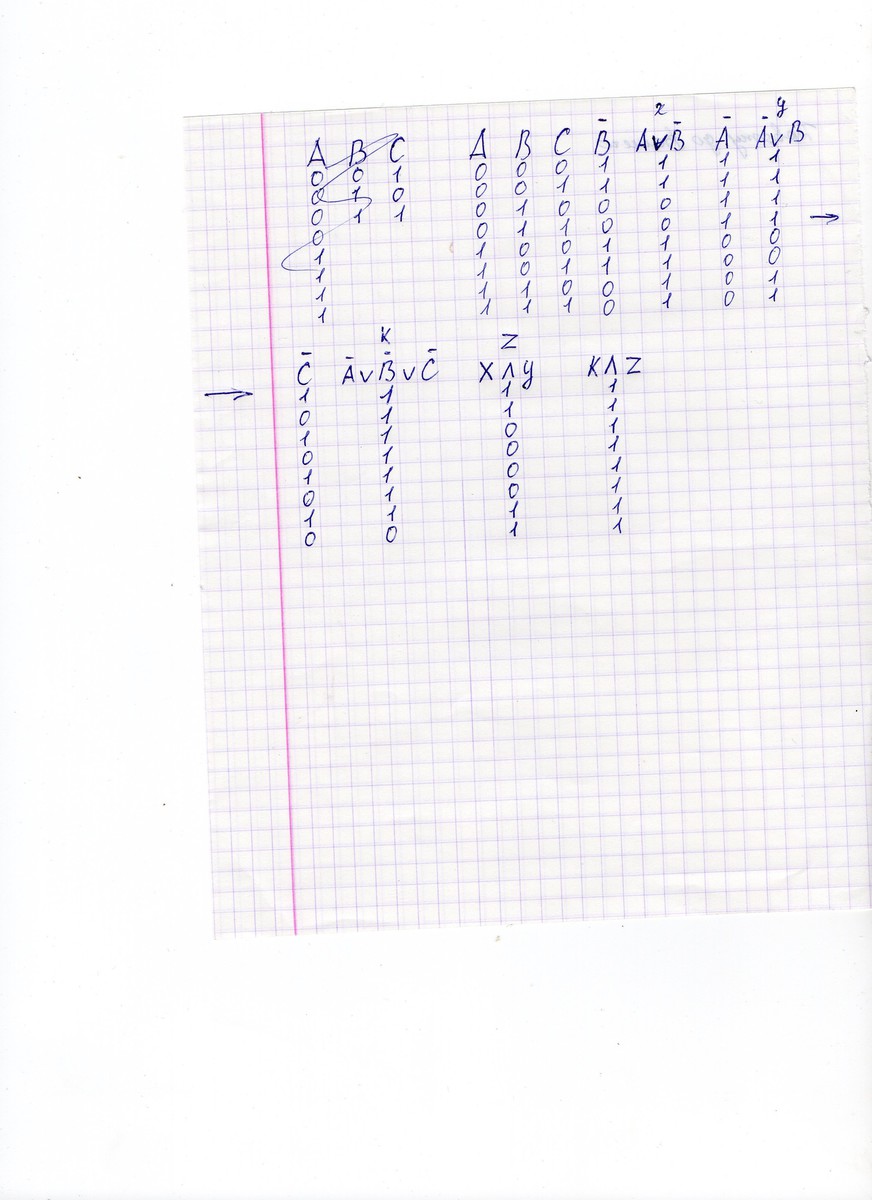 x y
A B C A B C B̄ AvB̄ Ā ĀvB
0 0 1 0 0 0 1 1 1 1
0 1 0 0 0 1 1 1 1 1
0 1 1 0 1 0 0 0 1 1
0 0 1 1 0 0 1 1 →
1 1 0 0 1 1 0 0
1 1 0 1 1 1 0 0
1 1 1 0 0 1 0 1
1 1 1 1 0 1 0 1
K Z
→ C̄ ĀvB̄vC̄ XΛy KΛZ
1 1 1 1
0 1 1 1
1 1 0 1
0 1 0 1
1 1 0 1
0 1 0 1
1 1 1 1
0 0 1 1